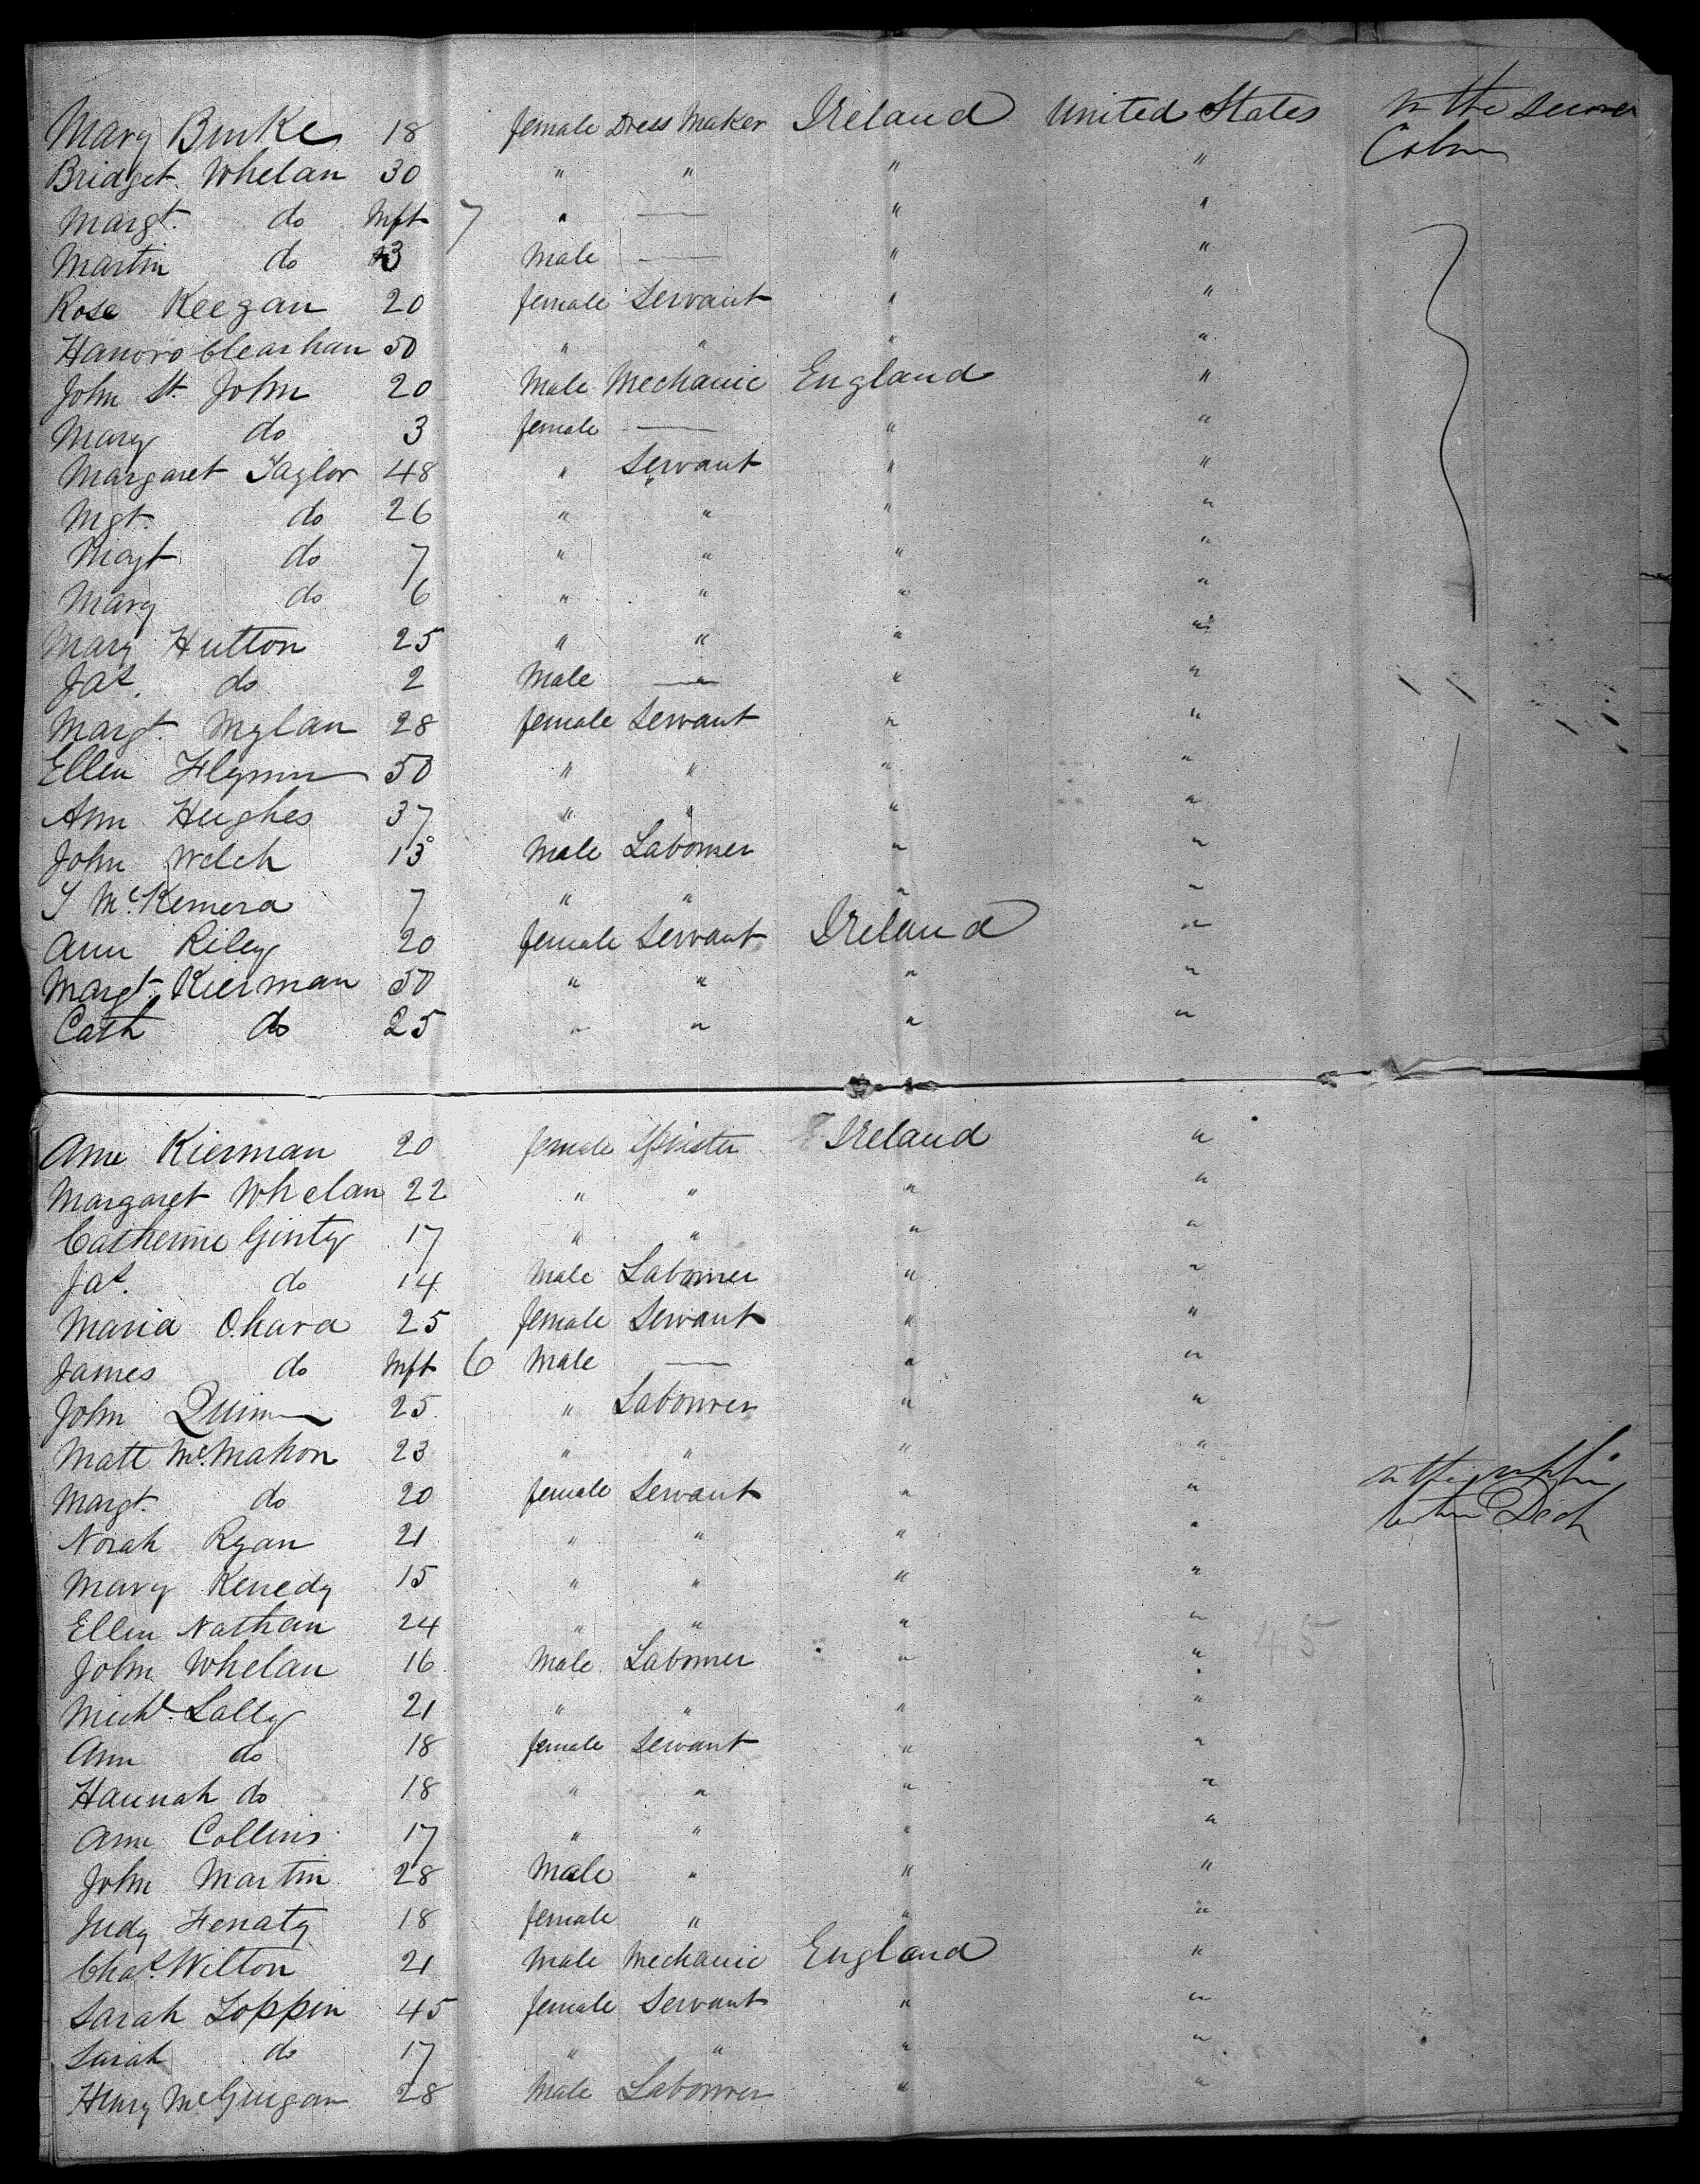 Mary Burke 18 female Dress Maker Ireland United States in the second
Cabin
Bridget Whelan 30 " " " "
Margt. do Inft 7 " — " "
Martin do 3 Male — " "
Rose Keegan 20 female Servant " "
Hanora 50 " " " "
John St. John 20 Male Mechanic England "
Mary do 3 female — " "
Margaret Taylor 48 " Servant " "
Mgt. do 26 " " " "
Magt do 7 " " " "
Mary do 6 " " " "
Mary Hutton 25 " " " "
Jas. do 2 Male — " "
Margt. Mylan 28 female Servant " "
Ellen Flynn 50 " " " "
Ann Hughes 37 " " " "
John Welch 13 Male Labourer " "
McKemera 7 " " " "
Ann Riley 20 female Servant Ireland "
Margt. Kiernan 50 " " " "
Cath do 25 " " " "
Ann Kiernan 20 female Spinster Ireland "
Margaret Whelan 22 " " " "
Catherine Ginty 17 " " " "
Jas. do 14 Male Labourer " "
Maria Ohara 25 female Servant " "
James do Inft 6 Male — " "
John Quinn 25 " Labourer " "
Matt McMahon 23 " " " "
Margt. do 20 female Servant " "
Deck
Norah Ryan 21 " " " "
Mary Kenedy 15 " " " "
Ellen Nathan 24 " " " "
John Whelan 16 Male Labourer " "
Michl. Lally 21 " " " "
Ann do 18 female Servant " "
Hannah do 18 " " " "
Ann Collins 17 " " " "
John Martin 28 Male " " "
Judy Henaty 18 female " " "
Chas. Wilton 21 Male Mechanic England "
Sarah Loppin 45 female Servant " "
Sarah do 17 " " " "
Henry McGuigan 28 Male Labourer " "